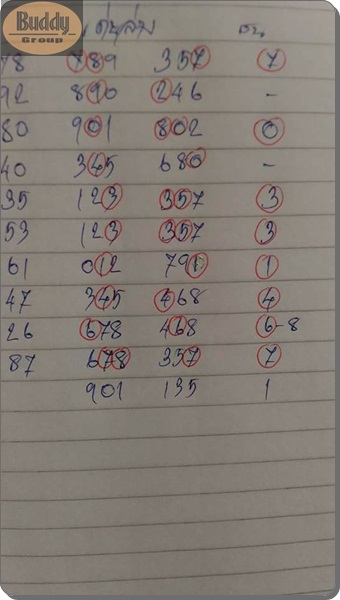 Buddy
Group
78 789 357 7
92 890 246 -
80 901 802 0
40 345 680 -
35 123 357 3
53 123 357 3
61 012 791 1
47 345 468 4
26 678 468 6-8
87 678 357 7
901 135 1